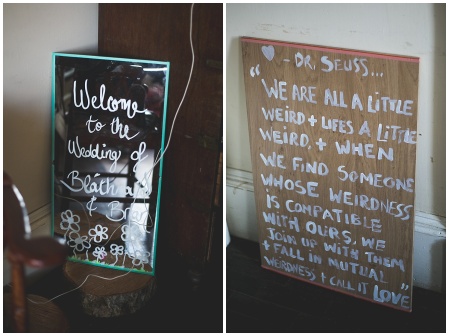 Welcome
to the
Wedding of
&
♥ - DR. SEUSS...
"WE ARE ALL A LITTLE
WEIRD + LIFES A LITTLE
WEIRD, + WHEN
WE FIND SOMEONE
WHOSE WEIRDNESS
IS COMPATIBLE
WITH OURS, WE
JOIN UP WITH THEM
+ FALL IN MUTUAL
WEIRDNESS + CALL IT LOVE"